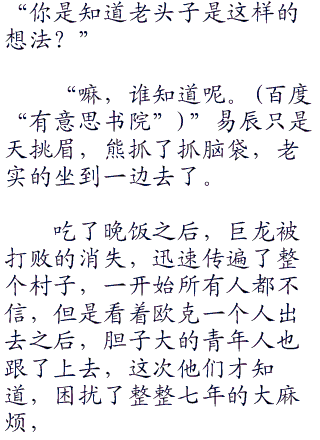 “你是知道老头子是这样的
想法？”
“嘛，谁知道呢。(百度
“有意思书院”)”易辰只是
天挑眉，熊抓了抓脑袋，老
实的坐到一边去了。
吃了晚饭之后，巨龙被
打败的消失，迅速传遍了整
个村子，一开始所有人都不
信，但是看着欧克一个人出
去之后，胆子大的青年人也
跟了上去，这次他们才知
道，困扰了整整七年的大麻
烦，